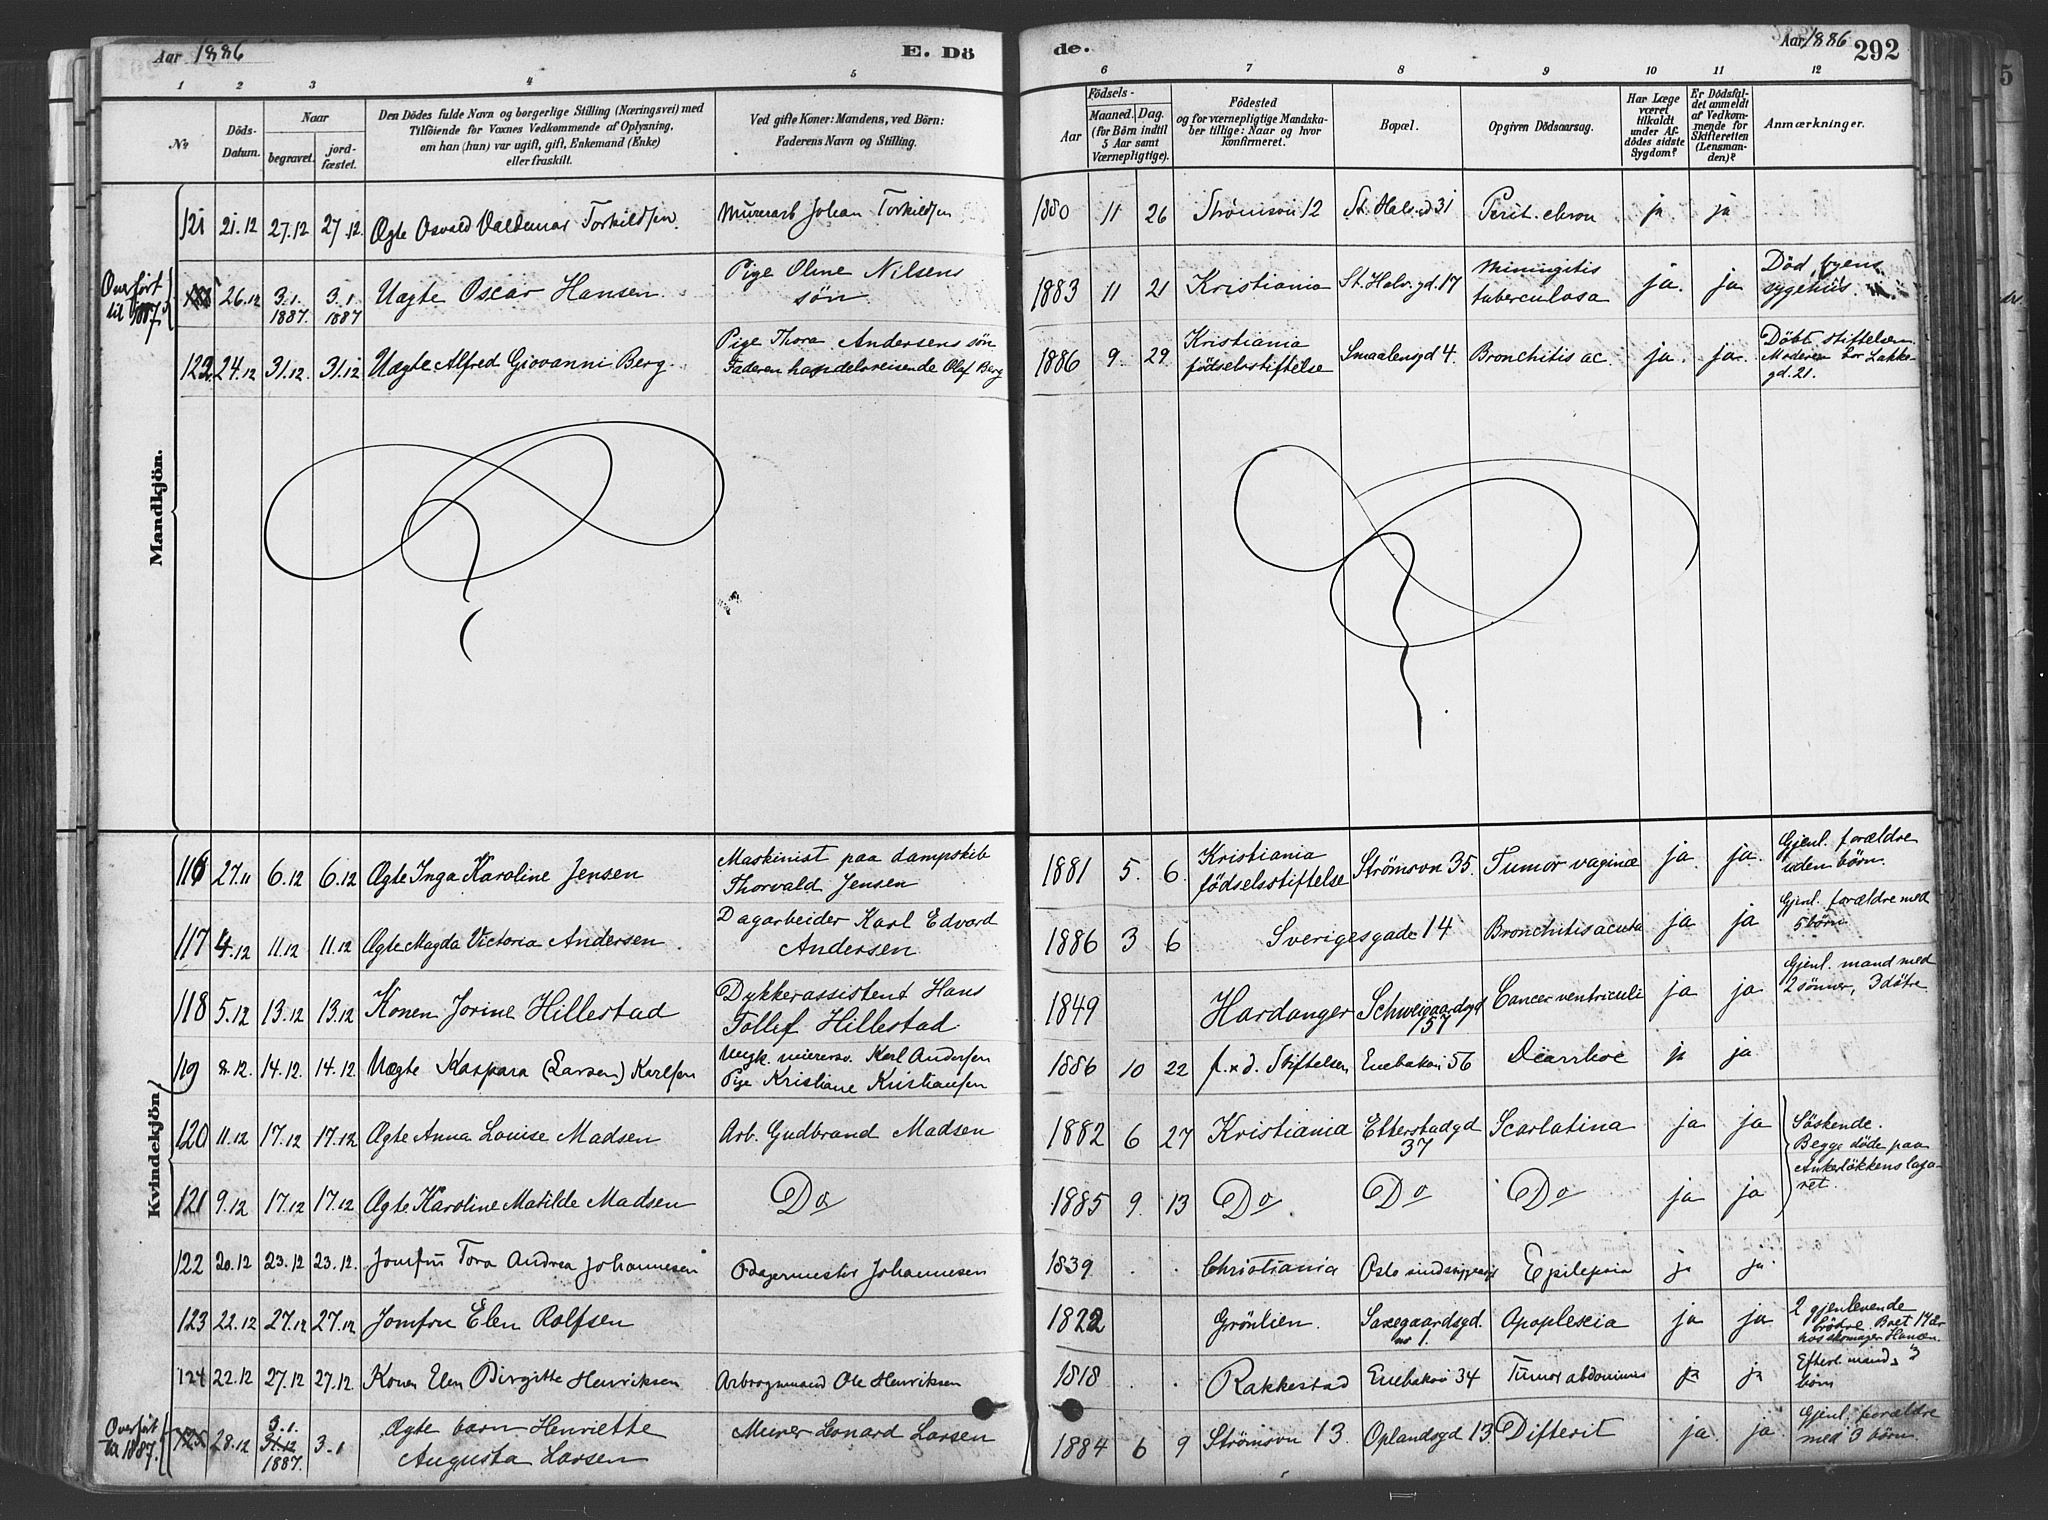 Aar 1886
E. Dö
de.
Aar 1886
292
1 2 3 4 5 6 7 8 9 10 11 12
No
Döds-Datum.
Naar
begravet.
jord-fæstet.
Den Dödes fulde Navn og borgerlige Stilling (Næringsvei) med
Tilföiende for Voxnes Vedkommende af Oplysning,
om han (hun) var ugift, gift, Enkemand (Enke)
eller fraskilt.
Ved gifte Koner: Mandens, ved Börn:
Faderens Navn og Stilling.
Födsels-
Aar
Maaned. Dag.
(for Börn indtil
5 Aar samt
Værnepligtige).
Födested
og for værnepligtige Mandska-
ber tillige: Naar og hvor
konfirmeret.
Bopæl.
Opgiven Dödsaarsag.
Har Læge
været
tilkaldt
under Af-
dödes sidste
Sygdom?
Er Dödsfal-
det anmeldt
af Vedkom-
mende for
Skifteretten
(Lensman-
den)?
Anmærkninger.
Mandkjön.
121 21.12 27.12 27.12 Ægte Osvald Valdemar Torkildsen. Murerarb Johan Torkildsen 1880 11 26 Strömsvn 12 St. Halv.gd 31 Perit. chron ja ja
Overfört
til 1887.
26.12 3.1. 1887. 3.1 1887 Uægte Oscar Hansen. Pige Oline Nilsens
søn. 1883 11 21 Kristiania St. Halv.gd. 17 Miningitis
tuberculosa ja. ja Död, byens
sygehus.
122. 24.12 31.12. 31.12 Uægte Alfred Giovanni Berg. Pige Thora Andersens sön
Faderen handelsreisende Olaf Berg 1886 9. 29. Kristiania
födselsstiftelse Smaalensgd 4. Bronchitis ac. ja. ja. Döbt stiftelsen
Moderen bor Lakke-
gd. 21.
Kvindekjön
116 27.11 6.12 6.12 Ægte Inga Karoline Jensen Maskinist paa dampskib
Thorvald Jensen 1881 5. 6. Kristiania
födselsstiftelse Strömsvn 35. Tumor vaginæ ja. ja. Gjenl. forældre
uden börn.
117 4.12 11.12 11.12 Ægte Magda Victoria Andersen. Dagarbeider Karl Edvard
Andersen. 1886 3 6 Sverigesgade 14 Bronchitis acuta ja ja Gjenl. forældre med
5 börn
118 5.12 13.12 13.12 Konen Jorine Hillestad Dykkerassistent Hans
Tollef Hillestad 1849 Hardanger Schweigaardsgd
57 Cancer ventriculi ja ja Gjenl. mand med
2 sönner, 3 dötre.
119 8.12. 14.12. 14.12. Uægte Kaspara (Larsen) Karlsen Ungk. murersv. Karl Andersen
Pige Kristiane Kristiansen 1886 10 22 f. o d. Stiftelsen Enebakvn 56 Diarrhoe ja ja
120 11.12 17.12 17.12 Ægte Anna Louise Madsen Arb. Gudbrand Madsen 1882 6 27 Kristiania Etterstadgd
37 Scarlatina ja ja Söskende.
Begge döde paa
Ankerlökkens laza-
ret.
121 9.12 17.12 17.12 Ægte Karoline Matilde Madsen Do 1885 9. 13 Do Do Do ja ja
122 20.12 23.12 23.12. Jomfru Tora Andrea Johannesen Bagermester Johannesen 1839 . . Christiania Oslo sindssygeasyl Epilepsia ja ja.
123 22.12 27.12 27.12 Jomfru Elen Rolfsen 1822 Grönlien. Saxegaardsgd.
no 1. Apoplexia ja ja. 2 gjenlevende
brödre. Boet 14 år
hos skomager Hansen
124 22.12 27.12 27.12. Konen Elen Birgitte Henriksen Arbeidsmand Ole Henriksen 1818 . . Rakkestad Enebakvn 34 Tumor abdominis ja ja Efterl. mand, 3
börn
Overfört
til 1887.
125 28.12 3.1. 31.12 1887. 3.1 Ægte barn Henriette
Augusta Larsen Murer Leonard Larsen 1884 6 9 Strömsvn 13. Oplandsgd 13. Difterit ja. ja. Gjenl. forældre
med 3 börn.